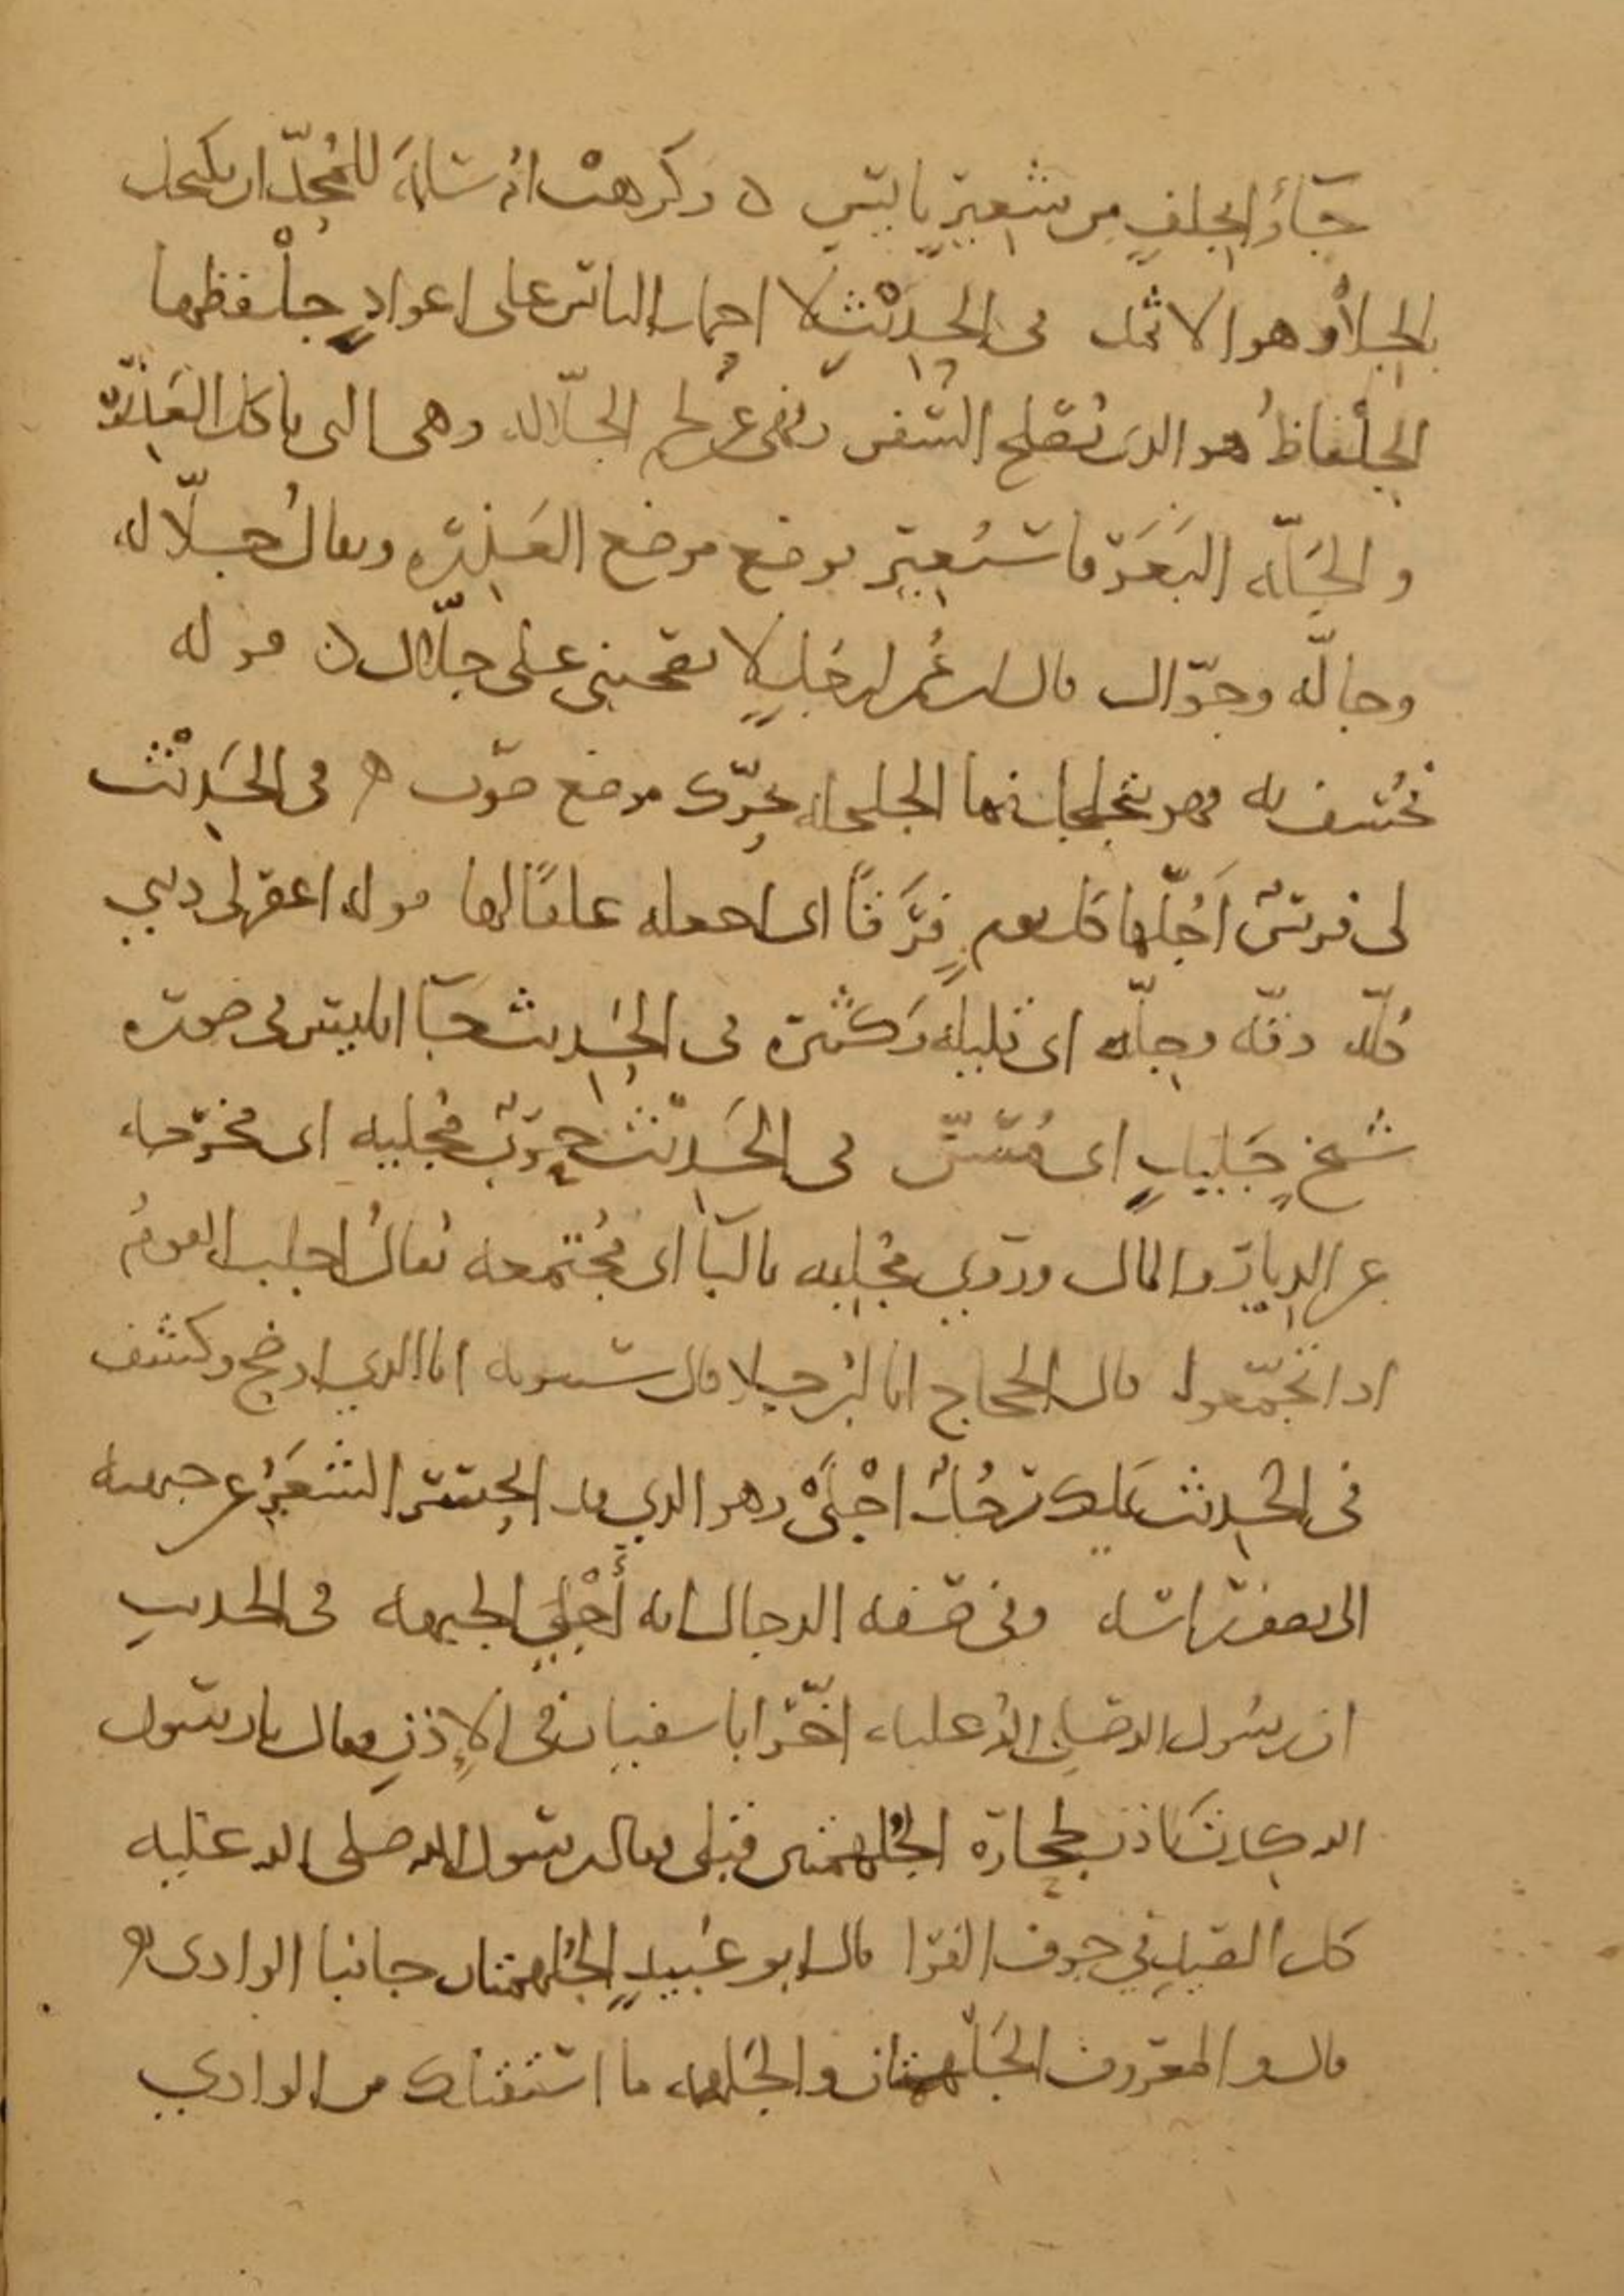 جَآءَ الجلفِ مِن شعيرٍ يابسٍ ه وكرهتْ امُ سَلمَة للمُحِدّ ان تكتحل
بالجِلاَءُ وهو الاثمد فى الحدِيْث لا احمل الناس على اعوادٍ جلْفظها
الجِلْفاظُ هو الذى يُصْلح السفن ونُهى عن لحم الجلّاله وهى التى تاكل العَذِرَة
والجَلّه البَعَرَة فاستُعِير بوضع موضع العَذِرَه ويقالُ جلّاله
وجالّه وجوّال قال ابن عُمَر لرجلٍ لا تصحبنى على جلّال ه قوله
فخُسِف به فهو يتجلجل فيها الجلجله تحرّك مع صَوت ه فى الحَدِيْث
لى فرسٌ اُجِلّها كل يومٍ فَرَقًا اى اجعله علفًا لها قوله اغفر لى ذنبي
كُلّه دقّه وجِلّه اى قليله وَكثيره فى الحَدِيث جَآ ابليس فى صُورَه
شَيخٍ جَلِيلٍ اى مُسِنّ فى الحَدِيْث حربٌ مُجْلِيه اى مخرجه
عن الدِيارِ والمال وروي مجلبه بالبَا اى مُجْتمعه يُقالُ اجلب القومُ
اذا تجمّعوا قال الحجاج انا ابنُ جلا قال سيبويه انا الذي اوضح وكشف
فى الحدِيث يملك رَجُلٌ اجْلَىْ وهو الذي قد انحسَر الشَعَرُ عن جبهته
الى نصف راسه وفى صفه الدجال انه أَجْلَى الجبهه فى الحديث
ان رسُول الله صَلى اللهُ عليه اخّر ابا سفيان فى الإِذْنِ فقال يا رسول
الله كدت تاذن لحجارة الجُلهمتين قبلى فقال رسول الله صلى الله عليه
كل الصَيدِ فى جوف الفَرا قال ابو عُبَيدٍ الجُلهمتان جانبا الوادى ه
قال والمعروف الجَلْهَتَان والجَلهه ما استقبلك من الوادي